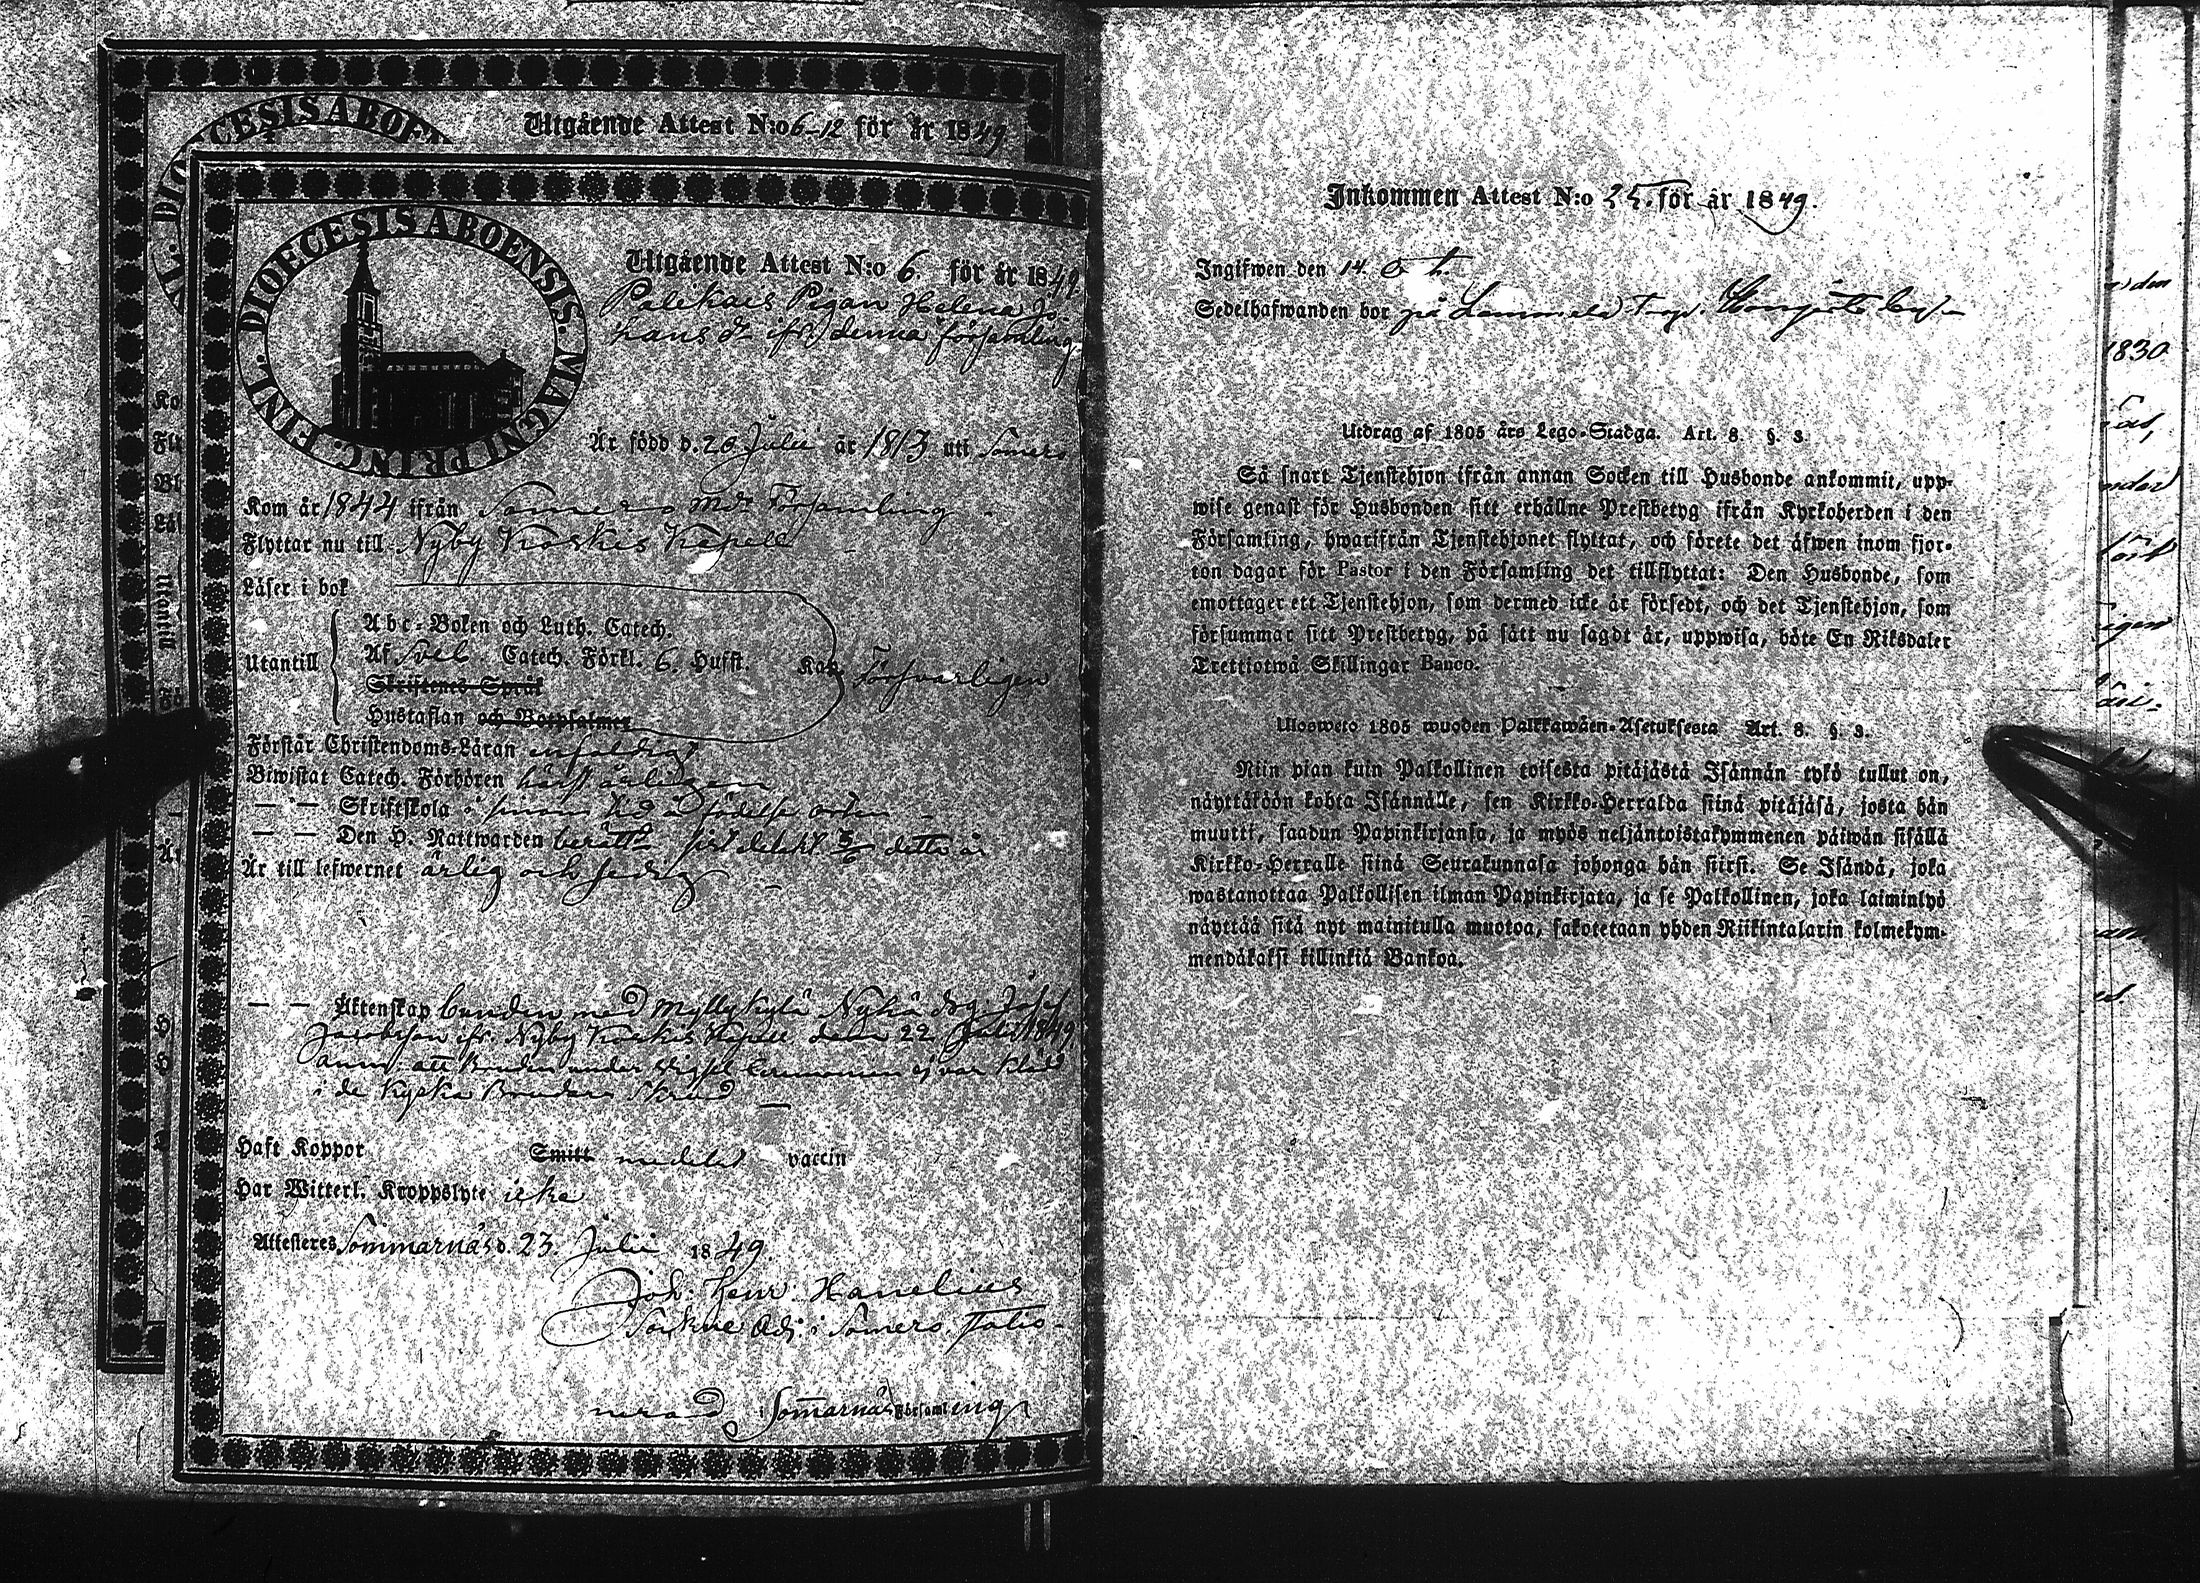 DIOECESIS ABOE
Utgående Attest N:o 6-12 för år 1849
FINL. DIOECESIS ABOENSIS. MAGNI PRINC.
Utgående Attest N:o 6. för år 1849
Palikais Pigan Helena Jo-
hans dr ifr. denna församling
Är född d. 20 Julii år 1813 uti Somero
Kom år 1844 ifrån Somero Mdr Församling
Flyttar nu till Nyby Koskis Kapell
Läser i bok
Abc-Boken och Luth. Catech.
Utantill Af Sveb. Catech. Förkl. 6. Hufst. Kan Försvarligen
Skriftenes Språk
Hustaflan och Botpsalmer
Förstår Christendoms-Läran enfaldigt
Biwistat Catech. Förhören
— — Skriftskola i sinom tid å födelse orten
— — Den H. Nattwarden berätt. sist delakt. 3/6 detta år
Är till lefwernet ärlig och sedig
— — Äktenskap bunden med Myllykylä Nykä drg. Josef
Jacobsson ifr. Nyby Koskis Kapell den 22 Julii 1849
anm: att Bruden under Vigsel Ceremonien ej var klädd
i de Kyska Bruders Skrud —
Haft Koppor Smitt meddelad vaccin
Har Witterl. Kroppslyte icke
Attesteres Sommarnäs d. 23 Julii 1849.
Joh: Henr: Hanelius
Sockne Adj. i Somero, Statio-
nerad i Sommarnäs Församling
Inkommen Attest N:o 25. för år 1849.
Ingifwen den 14.
Sedelhafwanden bor på
Utdrag af 1805 års Lego-Stadga. Art. 8. §. 3.
Så snart Tjenstehjon ifrån annan Socken till Husbonde ankommit, upp-
wise genast för Husbonden sitt erhållne Prestbetyg ifrån Kyrkoherden i den
Församling, hwarifrån Tjenstehjonet flyttat, och förete det äfwen inom fjor-
ton dagar för Pastor i den Församling det tillflyttat: Den Husbonde, som
emottager ett Tjenstehjon, som dermed icke är försedt, och det Tjenstehjon, som
försummar sitt Prestbetyg, på sätt nu sagdt är, uppwisa, böte En Riksdaler
Trettiotwå Skillingar Banco.
Ulosweto 1805 wuoden Palkkawäen-Asetuksesta Art. 8. §. 3.
Niin pian kuin Palkollinen toisesta pitäjästä Isännän tykö tullut on,
näyttäköön kohta Isännälle, sen Kirkko-Herralda siinä pitäjäsä, josta hän
muutti, saadun Papinkirjansa, ja myös neljäntoistakymmenen päiwän sisällä
Kirkko-Herralle siinä Seurakunnasa johonga hän siirsi. Se Isändä, joka
wastanottaa Palkollisen ilman Papinkirjata, ja se Palkollinen, joka laiminlyö
näyttää sitä nyt mainitulla muotoa, sakotetaan yhden Riikintalarin kolmekym-
mendäkaksi killinkiä Bankoa.
1830